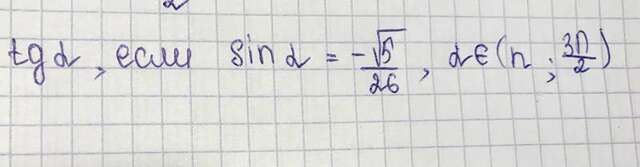 tg α, если sin α = -√5/26, α∈(π; 3π/2)